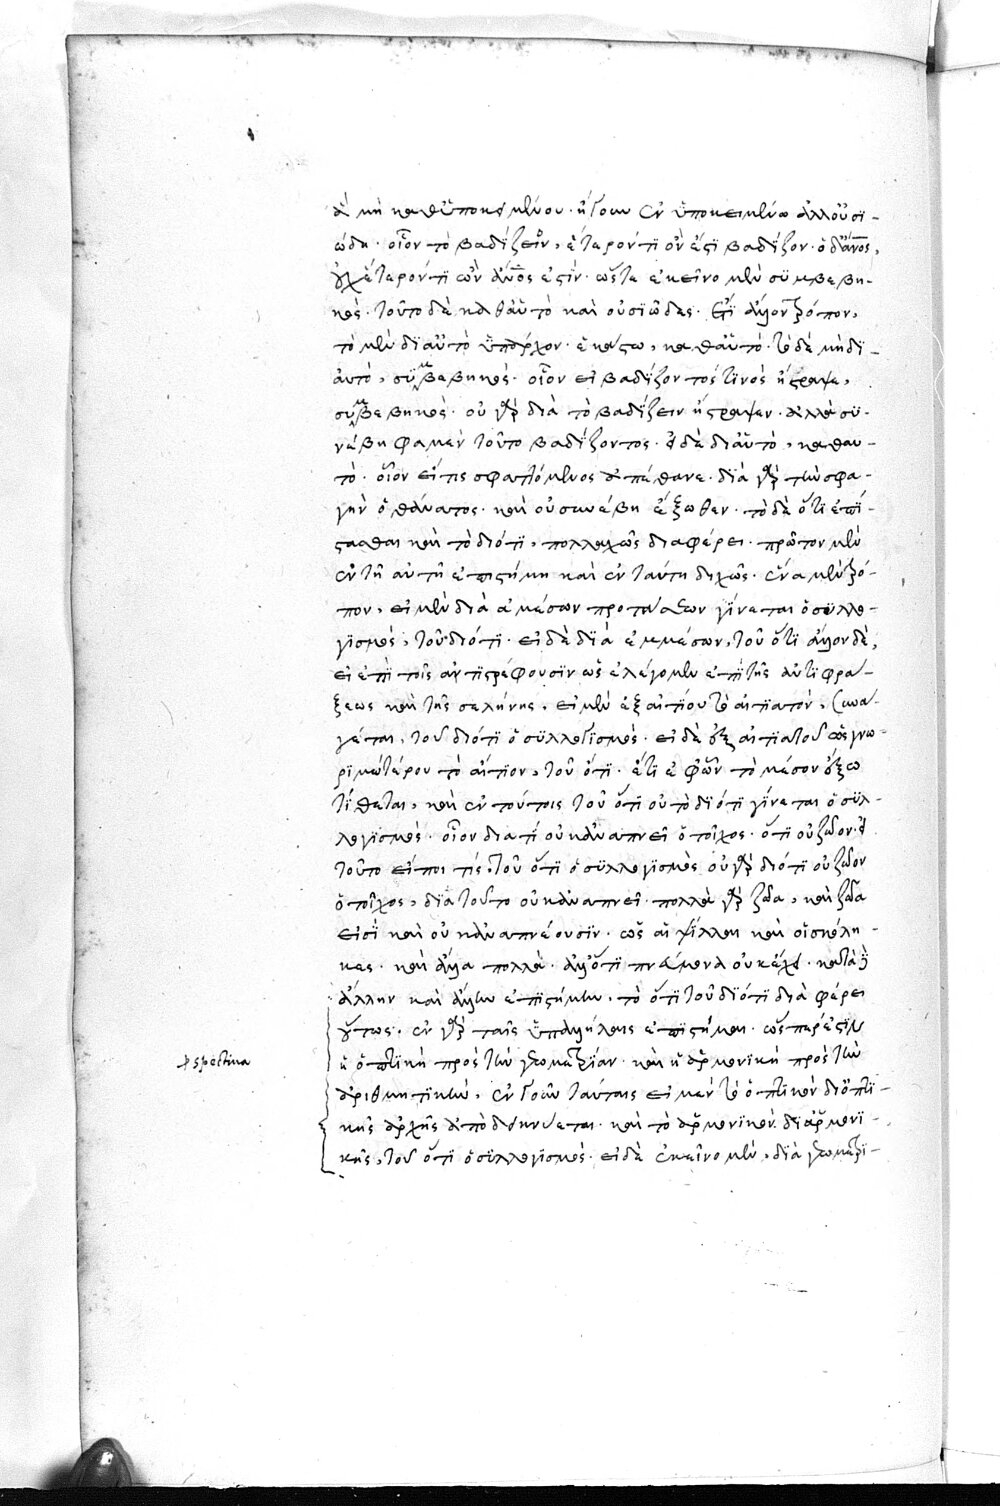 ἃ μὴ καθ' ὑποκειμένου· ἤγουν ἐν ὑποκειμένω ἀλλ' οὐσι-
ώδη· οἷον τὸ βαδίζειν, ἕτερόν τι ὄν ἐστι βαδίζον· ὁ δ' ἄνος,
οὐχ ἕτερόν τι ὢν ἄνός ἐστιν· ὥστε ἐκεῖνο μὲν συμβεβη-
κὸς· τοῦτο δὲ καθ' αὑτὸ καὶ οὐσιῶδες· ἔτι ἄλλον τρόπον,
τὸ μὲν δι' αὑτὸ ὑπάρχον ἑκάστω, καθ' αὑτό· τὸ δὲ μὴ δι'
αὑτὸ, συμβεβηκὸς· οἷον εἰ βαδίζοντός τινος ἤστραψε,
συμβεβηκὸς· οὐ γὰρ διὰ τὸ βαδίζειν ἤστραψεν· ἀλλὰ συ-
νέβη φαμὲν τοῦτο βαδίζοντος· εἰ δὲ δι' αὑτὸ, καθ' αυ-
τό· οἷον εἴ τις σφαττόμενος ἀπέθανε· διὰ γὰρ τὴν σφα-
γὴν ὁ θάνατος· καὶ οὐ συνέβη ἔξωθεν· τὸ δὲ ὅτι ἐπί-
στασθαι καὶ τὸ διότι, πολλαχῶς διαφέρει· πρῶτον μὲν
ἐν τῇ αὐτῇ ἐπιστήμη καὶ ἐν ταύτη διχῶς· ἕνα μὲν τρό-
πον, εἰ μὲν διὰ ἀμέσων προτάσεων γίνεται ὁ συλλο-
γισμὸς, τοῦ διότι· εἰ δὲ διὰ ἐμμέσων, τοῦ ὅτι ἄλλον δὲ,
εἰ ἐπὶ τοῖς ἀντιστρέφουσιν ὡς ἐλέγομεν ἐπὶ τῆς ἀντιφρά-
ξεως καὶ τῆς σελήνης, εἰ μὲν ἐξ αἰτίου τὸ αἰτιατὸν, συνά-
γεται, τοῦ διότι ὁ συλλογισμὸς· εἰ δὲ ἐξ αἰτιατοῦ ὡς γνω-
ριμωτέρου τὸ αἴτιον, τοῦ ὅτι· ἔτι ἐφ' ὧν τὸ μέσον ἔξω
τίθεται, καὶ ἐν τούτοις τοῦ ὅτι οὐ τὸ διότι γίνεται ὁ συλ-
λογισμὸς· οἷον διατί οὐκ ἀναπνεῖ ὁ τοῖχος· ὅτι οὐ ζῶον· εἰ
τοῦτο εἴποι τίς, τοῦ ὅτι ὁ συλλογισμὸς οὐ γὰρ διότι οὐ ζῶον
ὁ τοῖχος, διατοῦτο οὐκ ἀναπνεῖ· πολλὰ γὰρ ζῶα, καὶ ζῶα
εἰσὶ καὶ οὐκ ἀναπνέουσιν· ὡς αἱ ψύλλαι καὶ οἱ σκώλη-
κες· καὶ ἄλλα πολλὰ· ἀλλ' ὅτι πνεύμονα οὐκ ἔχει· κατὰ δὲ
ἄλλην καὶ ἄλλην ἐπιστήμην, τὸ ὅτι τοῦ διότι διαφέρει
οὕτως· ἐν γὰρ ταῖς ὑπαλλήλοις ἐπιστήμαι· ὥσπερ ἐστὶν
ἡ ὀπτικὴ πρὸς τὴν γεωμετρίαν· καὶ ἡ ἁρμονικὴ πρὸς τὴν
ἀριθμητικὴν, ἐν γοῦν ταύταις εἰ μὲν τὸ ὀπτικὸν δι' ὀπτι-
κῆς ἀρχῆς ἀποδείκνυται· καὶ τὸ ἁρμονικὸν δι' ἁρμονι-
κῆς, τοῦ ὅτι ὁ συλλογισμὸς· εἰ δὲ ἐκεῖνο μὲν, διὰ γεωμετρι-
pspectiva